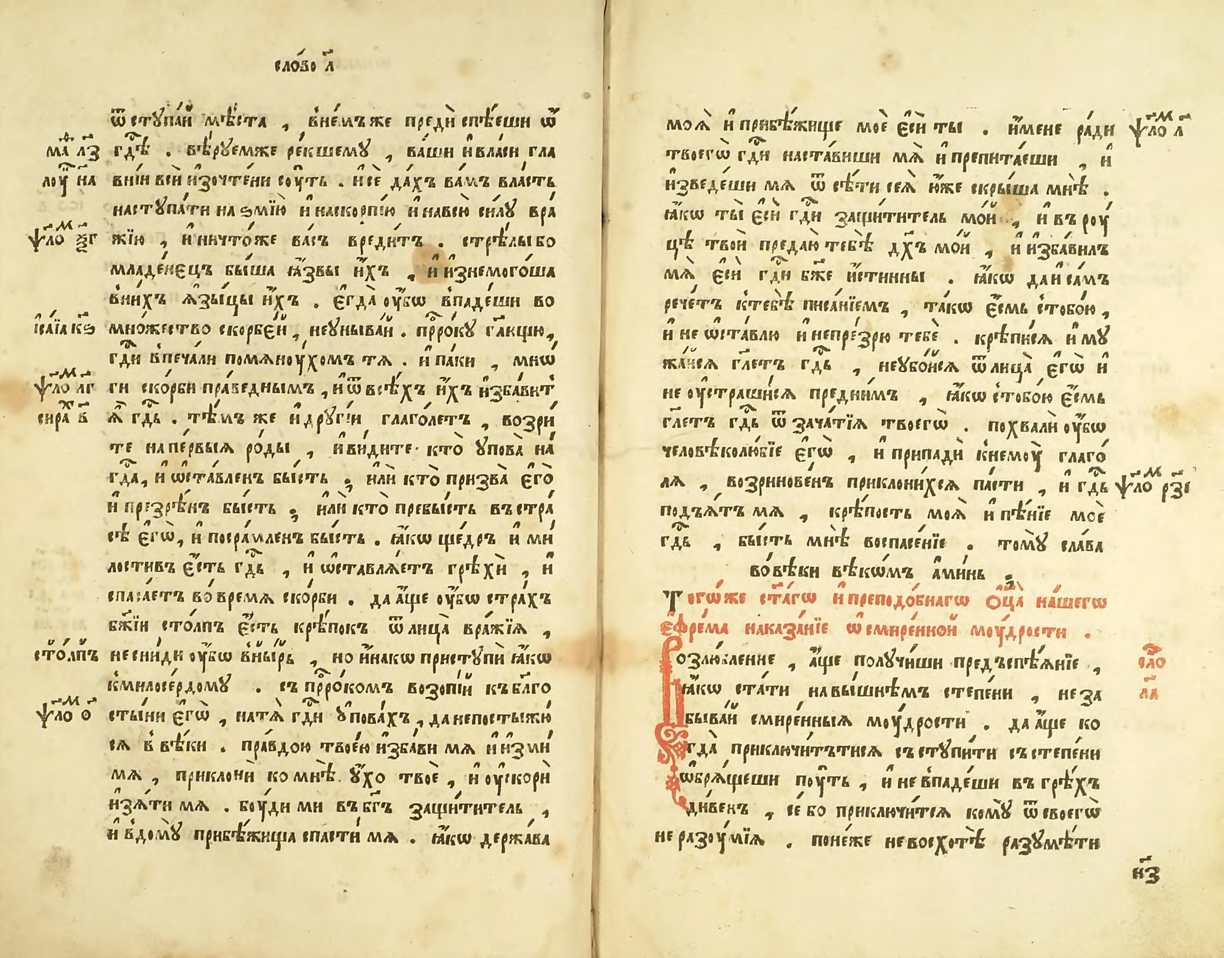 сло́во л҃
ѿ ступа́й мѣ́ста , вне́мъже предѝ спѣ́еши ѿ
гдⷭ҇ѣ . вѣ́руемже ре́кшему , ва́ши и҆власи гла
вні́и всѝ и҆зочте́ни соу́ть . и҆сѐ да́хъ ва́мъ вла́сть
наступа́ти на ѕмїю̀ и҆ наско́рпїю и҆ навсю̀ си́лу вра
жїю , и҆ ничто́же ва́съ вреди́тъ . стрѣ́лы бо
младе́нецъ бы́ша ꙗ҆́звы и҆́хъ , и҆ и҆знемого́ша
вни́хъ ѧ҆зы́цы и҆́хъ . є҆гда̀ оу҆́бѡ впаде́ши во
мно́жество скорбе́й , неуныва́й . прⷪ҇ро́ку гл҃ющю,
гдⷭ҇и впеча́ли помѧноу́хомъ тѧ . и҆ па́ки , мнѡ
ги ско́рби пра́веднымъ , и҆ ѿ всѣ́хъ и҆́хъ и҆зба́вит
ѧ҆̀ гдⷭ҇ь . тѣ́мъ же и҆ други́и глаго́летъ , возри́
те напе́рвыѧ ро́ды , и҆ви́дите· кто̀ упова̀ на
гдⷭ҇а, и҆ ѡ҆ста́вленъ бы́сть ; и҆лѝ кто̀ призва̀ є҆го̀
и҆ презрѣ́нъ бы́сть ; и҆лѝ кто̀ пребы́сть въстра́
сѣ є҆гѡ̀, и҆ посра́мленъ бы́сть . ꙗ҆́кѡ ще́дръ и҆ ми
лостивъ є҆́сть гдⷭ҇ь , и҆ ѡ҆ставлѧ́етъ грѣхѝ , и҆
спаса́етъ во вре́мѧ ско́рби . да а҆́ще оу҆́бѡ стра́хъ
бж҃їи сто́лпъ є҆́сть крѣ́покъ ѿ лица̀ вра́жїѧ ,
несни́ди оу҆́бѡ вны́рь , но и҆на́кѡ приступѝ ꙗ҆́кѡ
кмилосе́рдому . съ прⷪ҇ро́комъ возопі́й къ бл҃го
сты́ни є҆гѡ̀ , натѧ̀ гдⷭ҇и упова́хъ , да непостыжю́
сѧ в вѣ́ки . пра́вдою твое́ю и҆зба́ви мѧ и҆ и҆змѝ
мѧ , приклонѝ ко мнѣ̀ у҆́хо твоѐ , и҆ оу҆скорѝ
и҆зѧ́ти мѧ . бо́уди ми въ бг҃ъ защи́титель ,
и҆ вдо́му прибѣ́жища спастѝ мѧ . ꙗ҆́кѡ держа́ва
маⷴ҇ лз
лоу́ на
ѱлоⷨ ѯг
і҆са́їа кѕ
ѱлоⷨ лг
сираⷯ в
сто́лпъ
ѱлоⷨ о
моѧ̀ и҆ прибѣ́жище моѐ є҆сѝ ты̀ . и҆́мене ра́ди
твоегѡ̀ гдⷭ҇и наста́виши мѧ̀ и҆ препита́еши , и҆
и҆зведе́ши мѧ ѿ сѣ́ти сеѧ̀ ю҆́же скры́ша мнѣ̀ .
ꙗ҆́кѡ ты̀ є҆сѝ гдⷭ҇и защи́титель мо́й , и҆ въ роу́
цѣ твоѝ предаю̀ тебѣ̀ дх҃ъ мо́й , и҆ и҆зба́вилъ
мѧ̀ є҆сѝ гдⷭ҇и бж҃е и҆́стинны . ꙗ҆́кѡ да и҆ са́мъ
рече́тъ ктебѣ̀ писа́нїемъ , та́кѡ є҆́смь стобо́ю ,
и҆ не ѡ҆ста́влю и҆ непре́зрю тебѐ . крѣпи́сѧ и҆ му
жа́йсѧ гл҃етъ гдⷭ҇ь , неубо́йсѧ ѿ лица̀ є҆гѡ̀ и҆
не оу҆страши́сѧ пред̾ни́мъ , ꙗ҆́кѡ стобо́ю є҆́смь
гл҃етъ гдⷭ҇ь ѿ зача́тїѧ твоегѡ̀ . похвалѝ оу҆́бѡ
человѣколю́бїе є҆гѡ̀ , и҆ припадѝ кнемоу̀ глаго́
лѧ , возринове́нъ приклони́хсѧ па́сти , и҆ гдⷭ҇ь
под̾ѧ́тъ мѧ , крѣ́пость моѧ̀ и҆ пѣ́нїе моѐ
гдⷭ҇ь , бы́сть мнѣ̀ воспасе́нїе . тому̀ сла́ва
вовѣ́ки вѣкѡ́мъ а҆ми́нь .
Того́ѡже ст҃а́гѡ и҆ преподо́бнагѡ ѻ҆ц҃а̀ на́шегѡ
є҆фре́ма наказа́нїе ѡ҆ смире́нной моу́дрости .
Возлю́бление , а҆́ще получи́ши пред̾спѣѧ́нїе ,
ꙗ҆́кѡ ста́ти навы́шнѣмъ степе́ни , не за
быва́й смире́нныѧ моу́дрости . да а҆́ще ко
гда̀ приключи́тътисѧ съступи́ти съ степе́ни
ѡ҆брѧ́щеши поу́ть , и҆ не впаде́ши въ грѣ́хъ
ди́венъ , се́ бо приключи́тсѧ кому̀ ѿ своегѡ̀
не разоу́мїѧ . поне́же не восхотѣ̀ разумѣ́ти
ѱлоⷨ л
ѱлоⷨ рзі
сло
ла
нз